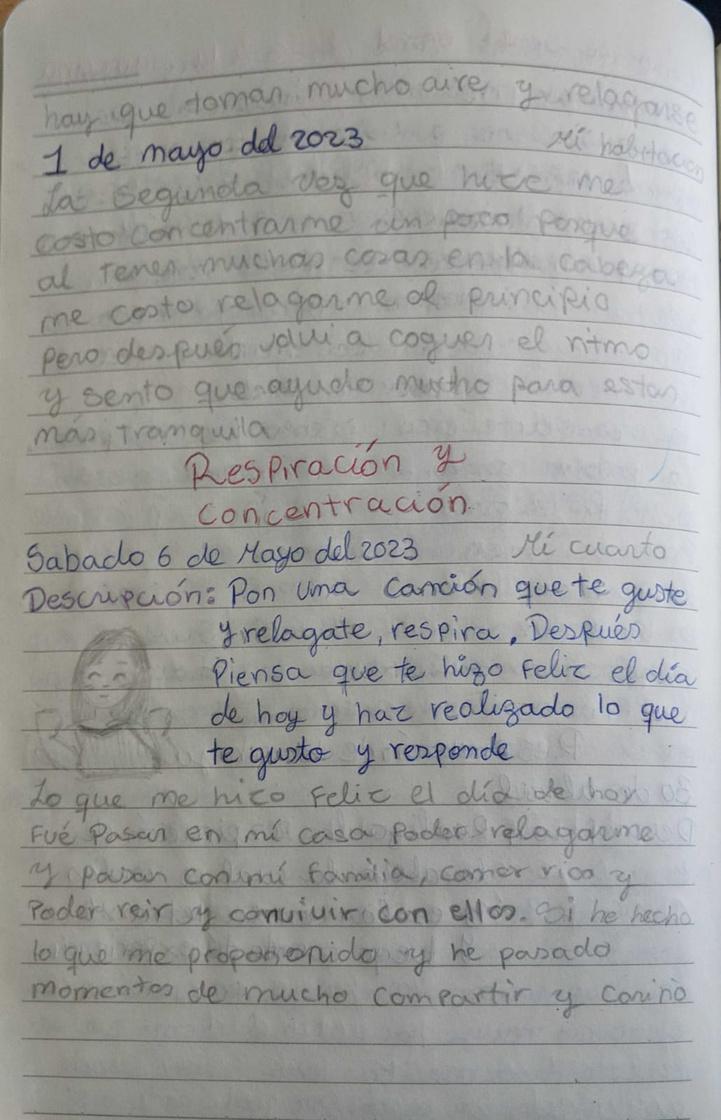 hay que tomar mucho aire y relagarse
1 de mayo del 2023 Mi habitacion
La segunda vez que hice me
costo concentrarme un poco porque
al tener muchas cosas en la cabeza
me costo relagarme al principio
pero después volvi a coguer el ritmo
y sento que ayudo mucho para estar
más tranquila
Respiración y
concentración
Sabado 6 de Mayo del 2023 Mi cuarto
Descripción: Pon una canción que te guste
y relagate, respira, Después
Piensa que te hizo Feliz el día
de hoy y haz realizado lo que
te gusto y responde
Lo que me hico Feliz el día de hoy
Fué Pasar en mi casa Poder relagarme
y pasar con mi familia, comer rico y
Poder reir y convivir con ellos. Si he hecho
lo que me proponido y he pasado
momentos de mucho compartir y cariño